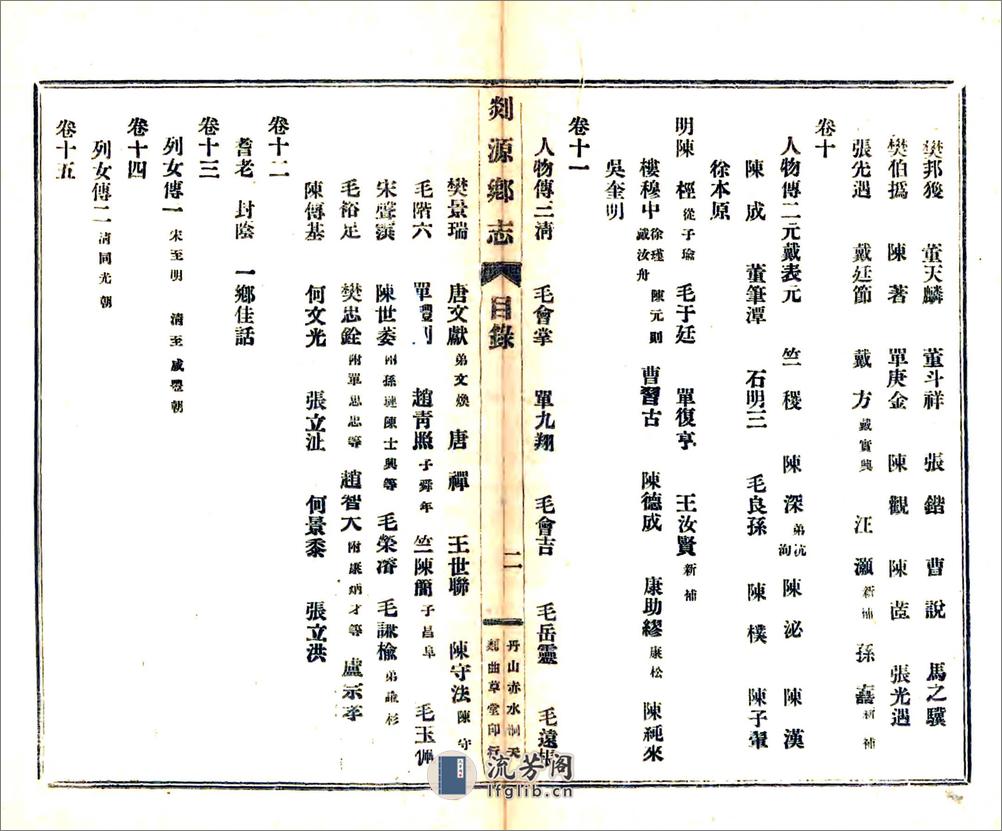 樊邦獲　董天麟　董斗祥　張鍇　曹說　馬之驥
樊伯撝　陳著　單庚金　陳觀　陳　張光遇
張先遇　戴廷節　戴方戴實興　汪灝新補　孫新補
卷十
人物傳二元戴表元　竺稷　陳深弟沆洵　陳泌　陳漢
陳成　董筆潭　石明三　毛良孫　陳樸　陳子翬
徐本原
明陳桱從子瑜　毛于廷　單復亨　王汝賢新補
樓穆中徐瑾戴汝舟陳元則　曹習古　陳德成　康助繆康松　陳純來
吳奎明
卷十一
人物傳三清　毛會掌　單九翔　毛會吉　毛岳靈　毛遠
剡源鄉志　目錄　二　丹山赤水洞天
剡曲草堂印行
樊景瑞　唐文獻弟文煥　唐禪　王世聯　陳守法陳守
毛階六　單　趙青照子舜年　竺陳簡子昌阜　毛玉佩
宋聲　陳世蒌附孫璉陳士興等　毛榮濬　毛謙檢弟誰杉
毛裕足　樊忠銓附單思忠等　趙智大附康炳才等　盧宗孝
陳傳基　何文光　張立沚　何景黍　張立洪
卷十二
耆老　封陰　一鄉佳話
卷十三
列女傳一宋至明　清至咸豐朝
卷十四
列女傳二清同光朝
卷十五
流芳阁
lfglib.cn